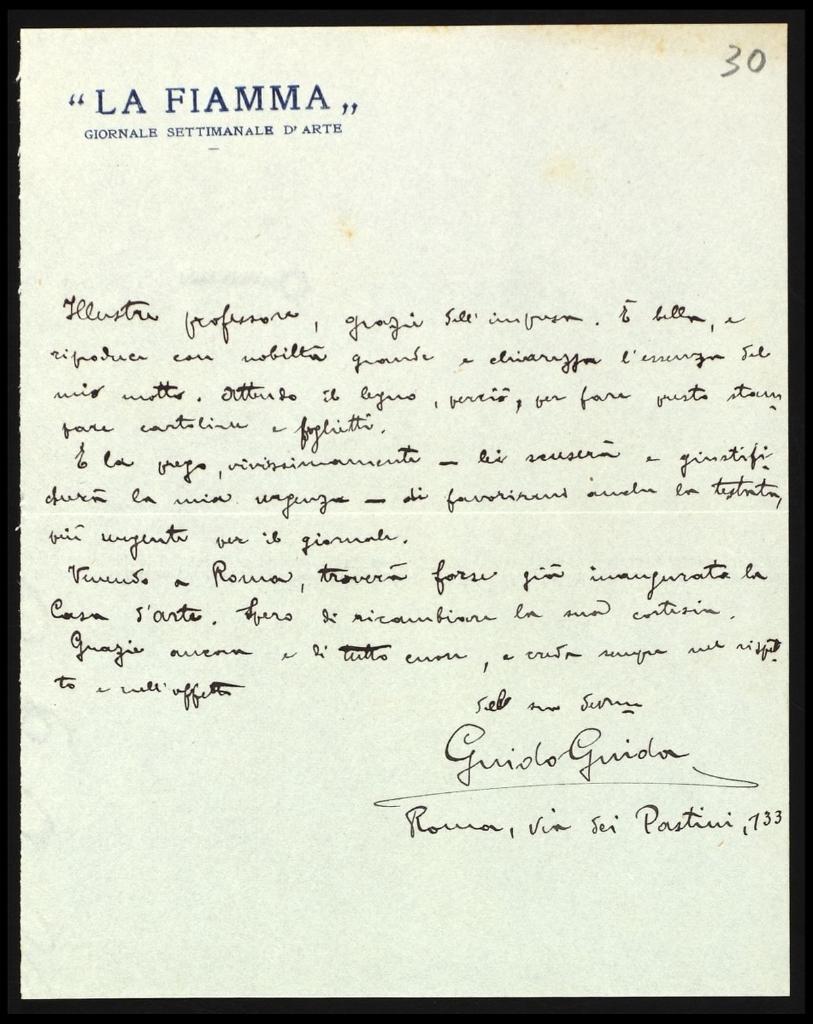 30
“LA FIAMMA„
GIORNALE SETTIMANALE D'ARTE
Illustre professore, grazie dell'impresa. È bella, e
riproduce con nobiltà grande e chiarezza l'essenza del
mio motto. Attendo il legno, perciò, per fare presto stam
pare cartoline e foglietti.
E la prego, vivissimamente – Lei scuserà e giustifi-
cherà la mia urgenza – di favorirmi anche la testata,
più urgente per il giornale.
Venendo a Roma, troverà forse già inaugurata la
Casa d'arte. Spero di ricambiare la sua cortesia.
Grazie ancora e di tutto cuore, e creda sempre nel rispet-
to e nell'affetto
del suo devmo
Guido Guida
Roma, via dei Pastini, 133